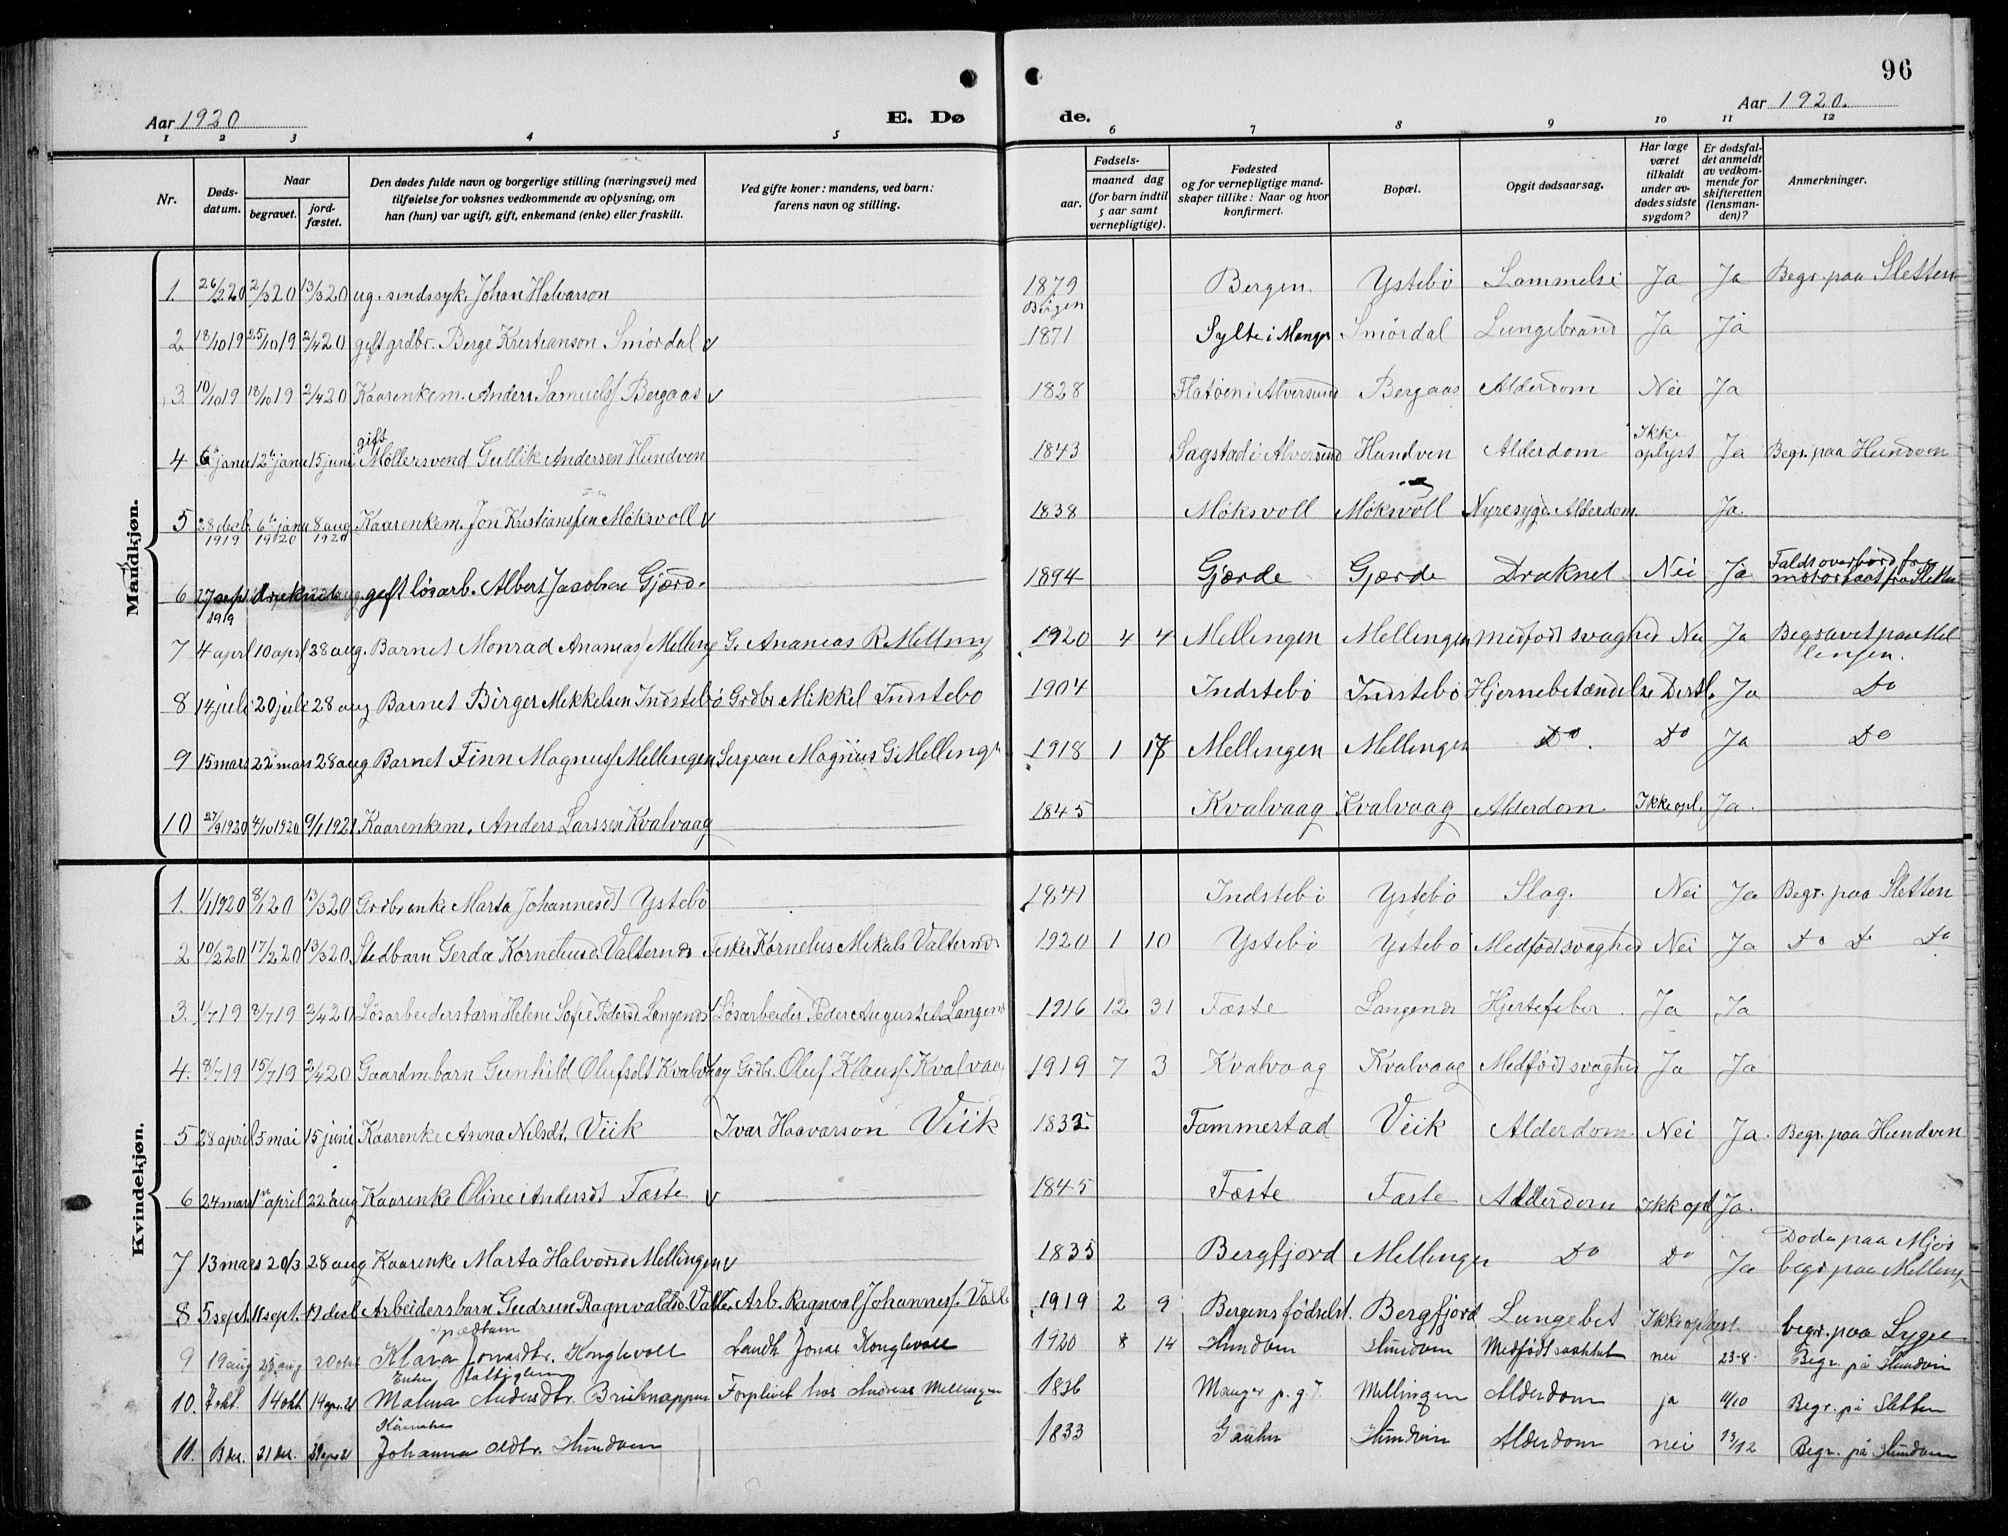 96
Aar 1920 E. Dø de. Aar 1920.
1 2 3 4 5 6 7 8 9 10 11 12
Nr.
Døds-
datum.
Naar
begravet.
jord-
fæstet.
Den dødes fulde navn og borgerlige stilling (næringsvei) med
tilføielse for voksnes vedkommende av oplysning, om
han (hun) var ugift, gift, enkemand (enke) eller fraskilt.
Ved gifte koner: mandens, ved barn:
farens navn og stilling.
Fødsels-
aar.
maaned dag
(for barn indtil
5 aar samt
vernepligtige).
Fødested
og for vernepligtige mand-
skaper tillike: Naar og hvor
konfirmert.
Bopæl.
Opgit dødsaarsag.
Har læge
været
tilkaldt
under av-
dødes sidste
sygdom?
Er dødsfal-
det anmeldt
av vedkom-
mende for
skifteretten
(lensman-
den)?
Anmerkninger.
Mandkjøn.
1. 26/2 20 2/3 20 13/3 20 ug. sindssyk. Johan Halvarson 1879 Bergen. Ystebö Lammelse Ja Ja Begr. paa Sletten
Bergen
2 18/10 19 25/10 19 2/4 20 gift grdbr. Berge Kristianson Smördal v 1871 Sylte i Manger Smördal Lungebrand Ja Ja
3. 10/10 19 18/10 19 2/4 20 Kaarenkem. Anders Samuels. Bergaas v 1828 Flatöen i Alversund Bergaas Alderdom Nei Ja
gift
4 6te janu 12te janu 15 juni Møllersvend Gullik Andersen Hundven 1843 Sagstad i Alversund Hundven Alderdom Ikke oplyst Ja Begr. paa Hundven
5 28 decb. 1919 6te janu 1920 8 aug 1920 Kaarenkem. Jon Kristianssen Møksvoll v 1838 Møksvoll Møksvoll Nyresyge Alderdom. Ja.
6 27 sept 1919 druknet gift løsarb. Albert Jacobsen Gjærde 1894 Gjærde Gjærde Druknet Nei Ja Faldt overbord fra
motorbaat fra Sletten
7 4 april 10 april 28 aug. Barnet Monrad Ananias. Melling G. Ananias R. Melling 1920 4 4 Mellingen Mellingen medfødt svaghed Nei Ja Begravet paa Mel
lingen.
8 14 juli 20 juli 28 aug Barnet Birger Mikkelsen Indstebö Grdbr. Mikkel Indstebö 1904 Indstebö Indstebö Hjernebetændelse Ja Do
9 15 mars 22 mars 28 aug Barnet Finn Magnuss. Mellingen Magnus G. Mellingen 1918 1 Mellingen Mellingen Do. Do Ja Do
10 27/9 1920 4/10 1920 9/1 1921 Kaarenkem. Anders Larssen Kvalvaag 1845 Kvalvaag Kvalvaag Alderdom Ikke opl. Ja.
Kvindekjøn.
1. 1/1 1920 8/1 20 13/3 20 Grdbr.enke Marta Johannesdt Ystebö 1841 Indstebö Ystebö Slag. Nei Ja Begr. paa Sletten
2 10/2 20 17/2 20 13/3 20. Gerda Korneliusd. Valternes Fisker Kornelius Mikals. Valternes 1920 1 10 Ystebö Ystebö Medfødt svaghed Nei Ja Do Do Do
3. 1/7 19 8/7 19 3/4 20 Løsarbeidersbarn Helene Sofie Pedersd. Langenes Løsarbeider Peder August Langenes 1916 12 31 Fæste Langenes Hjertefeber Ja Ja
4. 8/7 19 15/7 19 3/4 20 Gaardm.barn Gunhild Olufsdt Kvalvaag Grdbr. Oluf Klauss. Kvalvaag 1919 7 3 Kvalvaag Kvalvaag Medfødt svaghed Ja Ja
5 28 april 5 mai 15 juni Kaarenke Anna Nilsdt. Viik Ivar Haavarson Viik 1832 Fammestad Viik Alderdom Nei Ja. Begr. paa Hundven
6 24 mars 1ste april 22 aug Kaarenke Oline Andersdt Fæste v 1845 Fæste Fæste Alderdom Ikke opl Ja.
7 13 mars 20/3 28 aug Kaarenke Marta Halvorsd Mellingen v 1835 Bergfjord Mellingen Do Do Ja Döde paa Mjös
begr. paa Melling
8 5 sept. 11 sept. 19 decb Arbeidersbarn Gudrun Ragnvaldsd. Valle. Arb. Ragnval Johanness. Valle 1919 2 9 Bergens fødselst. Bergfjord Lungebet Ikke oplyst begr. paa Lygre
spædbarn
9 19 aug 25 aug Klara Jonasdtr. Konglevoll Landh. Jonas Konglevoll 1920 8 14 Hundven Hundven Medfødt svakhet nei 23-8 Begr. på Hundvin
Enke fattiglem
10. 7 okt. 14 okt. 14 apr. 21 Malina Andersdtr. Brieknappen Forpleiet hos Andreas Mellingen 1836 Manger p. g. Mellingen Alderdom ja 11/10 Begr. på Sletten
11. 21 des. Johanna Oldtr. Hundven 1833 Hundvin Alderdom nei 13/12 Begr. på Hundven